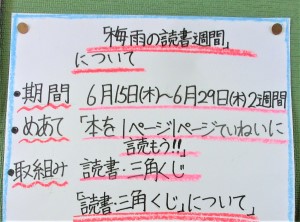 「梅雨の読書週間」
について
・期間 6月15日(木)~6月29日(木)2週間
・めあて「本を1ページ1ページていねいに
読もう!!」
・取組み 読書・三角くじ
「読書・三角くじ」について